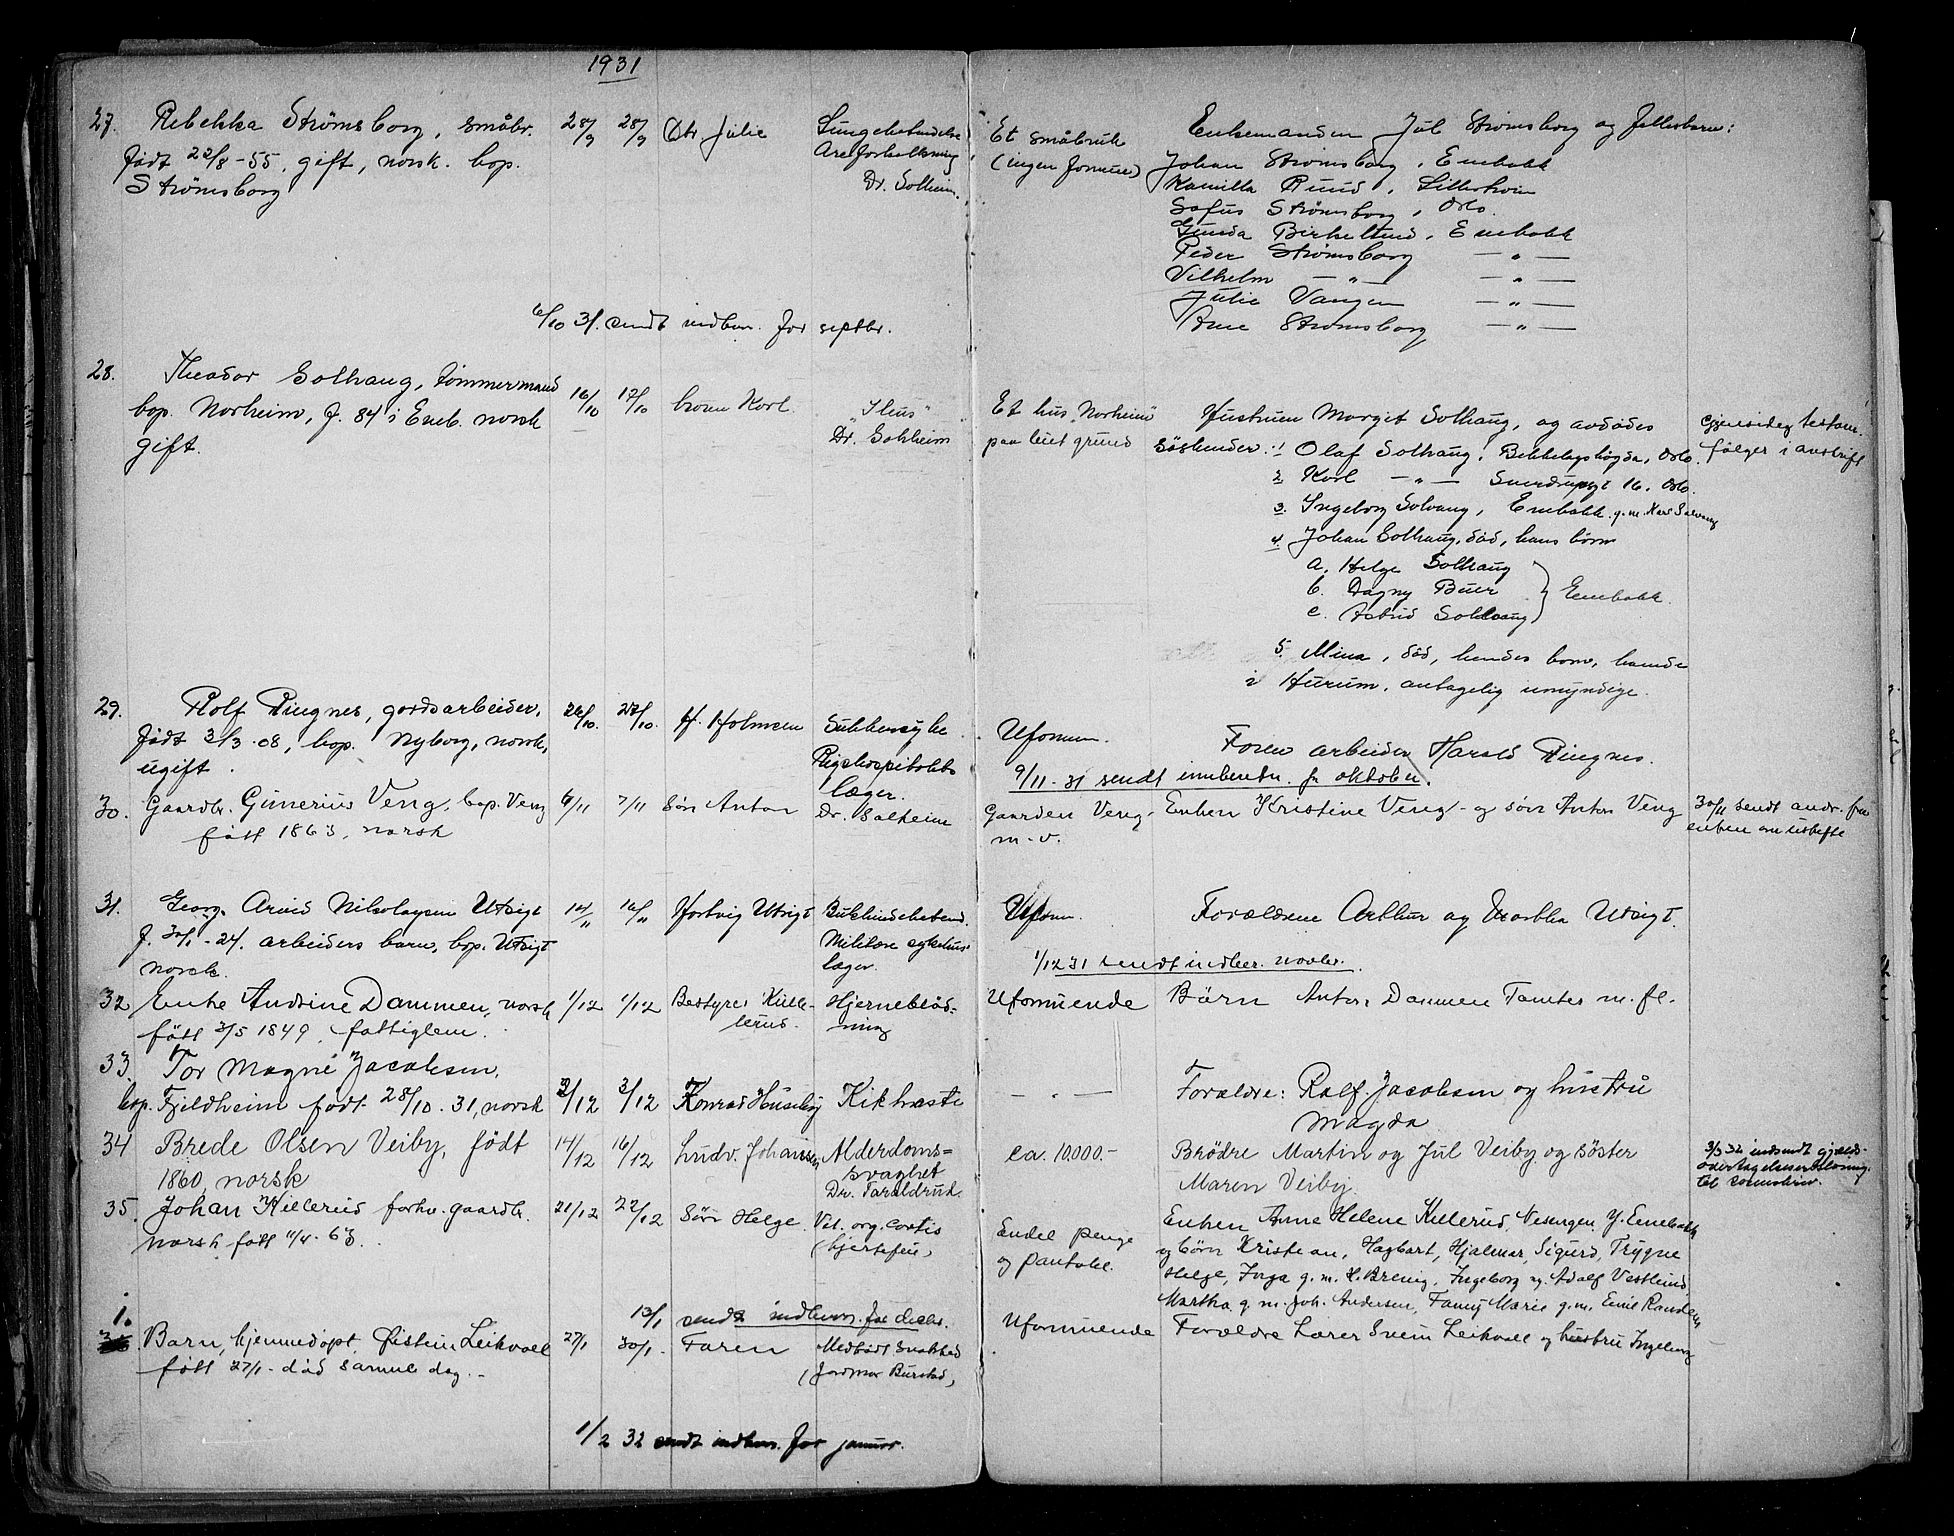 1931
27. Rebekka Strømsborg, småbr. 28/9 28/9 Dtr. Julie
født 22/8-55, gift, norsk. bop.
Strømsborg
Lungebetendelse
Areforkalkning
Dr. Solheim.
Et småbruk
(ingen formue)
Enkemanden Jul Strømsborg og fellesbarn:
Johan Strømsborg, Enebakk
Kamilla Ruud, Lillestrøm
Sofus Strømsborg, Oslo.
Gunda Birkelund, Enebakk
Peder Strømsborg — " —
Vilhelm — " — — " —
Julie Vangen — " —
Arne Strømsborg — " —
6/10 31. sendt indber. for septbr.
28. Theodor Solhaug, tømmermand 16/10 17/10 broren Karl.
bop. Norheim, f. 84 i Eneb. norsk
gift.
"Ileus"
Dr. Solheim
Et hus "Norheim"
paa leiet grund
Hustruen Margit Solhaug, og avdødes
søskender: 1 Olaf Solhaug, Bekkelagshøgda, Oslo.
2 Karl — " — Sverdrupsgt 16. Oslo.
3. Ingeborg Solvang, Enebakk. g.m. Solvang
4 Johan Solhaug, død, hans børn
a. Helge Solhaug
b. Dagny Buer } Enebakk.
c. Astrid Solhaug
5. Mina, død, hendes barn,
i Hurum, antagelig umyndige.
Gjensidig testam.
følger i avskrift
29. Rolf Ringnes, gårdsarbeider, 26/10 27/10. H. Holmsen
født 3/3-08, bop. Nyborg, norsk,
ugift.
Sukkersyke
Rigshospitalets
læger.
Uformu.
Faren arbeider Harald Ringnes.
9/11-31 sendt innberetn. for oktober.
30. Gaardbr. Gunerius Veng, bop. Veng 6/11 7/11 Søn Anton Dr. Solheim
født 1863, norsk
Gaarden Veng
m.v.
Enken Kristine Veng og søn Anton Veng
30/11 sendt andr. fra
enken om uskifte
31. Georg Arvid Nikolaysen Utsigt 14/11 16/11 Hartvig Utsigt
f. 30/1-24. arbeiders barn, bop. Utsigt
norsk.
Bukhindebetend.
Militære sykehus'
læger.
Uformu.
Forældrene Arthur og Martha Utsigt.
1/12 31 sendt indber. novbr.
32 Enke Andrine Dammen, norsk 1/12 1/12 Bestyrer Kille-
lerud.
født 3/5 1849, fattiglem.
Hjerneblød-
ning
Uformuende
Børn Anton Dammen Tomter m. fl.
33. Tor Magne Jacobsen,
bop. Fjeldheim født 28/10.31, norsk 2/12 3/12 Konrad Huseby Kikhoste
— " —
Forældre: Ralf Jacobsen og hustru
Magda
34 Brede Olsen Veiby, født 14/12 16/12 Ludv. Johansen
1860, norsk
Alderdoms=
svaghet
Dr. Taraldrud.
ca. 10.000.-
Brödre Martin og Jul Veiby og söster
Maren Veiby.
3/3 32 indsendt gjælds-
overtagelseserklæring
til sorenskriv.
35. Johan Killerud forhv. gaardbr. 21/12 22/12 Søn Helge.
norsk, født 11/4-63.
Vit. org. cordis
(hjertefeil)
Endel penge
og pantobl.
Enken Anne Helene Killerud, Nesengen, Y. Enebakk
og børn Kristian, Hagbart, Hjalmar, Sigurd, Trygve
Helge, Inga g.m. H. Brenig, Ingeborg og Adolf Vestlund
Martha g.m. Joh. Andersen, Fanny Marie g.m. Emil Randem
13/1 sendt indber. for decbr.
1. Barn, hjemmedøpt, Øistein Leikvoll 27/1 30/1. Faren
født 27/1 - død samme dag.-
Medfødt svakhed
(Jordmor Burstad)
Uformuende
Forældre Lærer Svein Leikvoll og hustru Ingeborg
1/2 32 sendt indber. for januar.